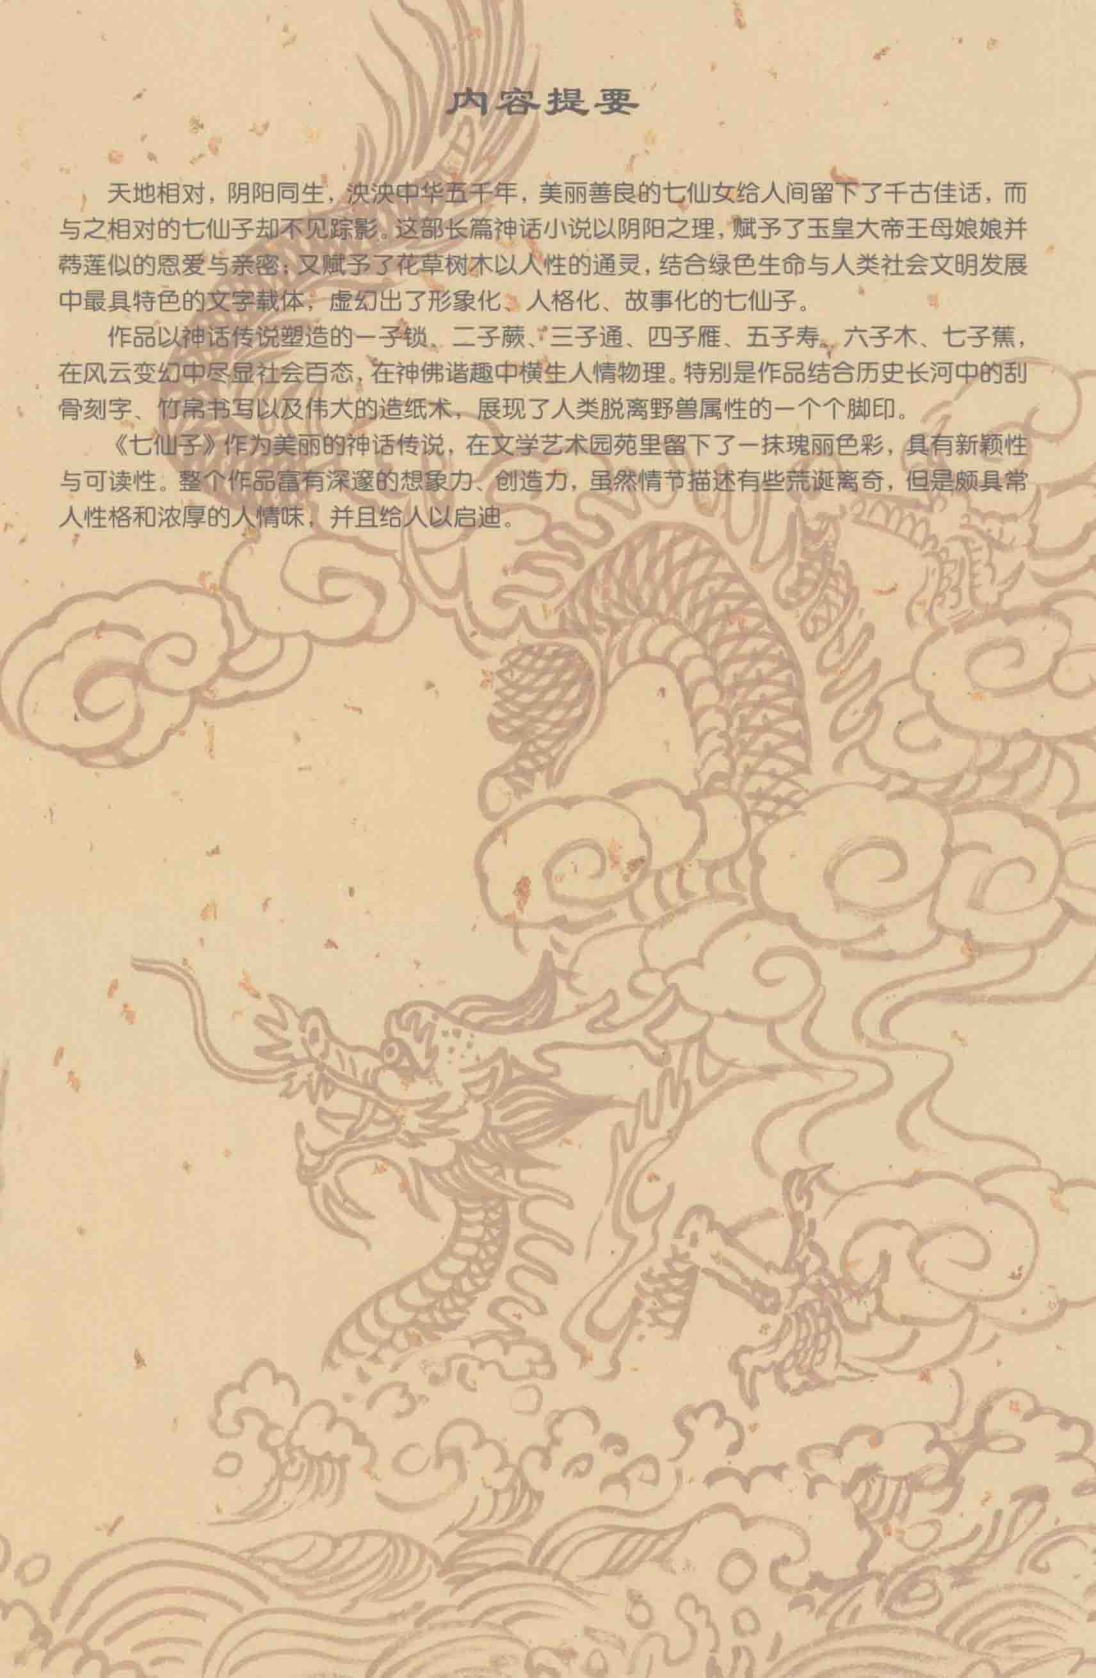 内容提要
天地相对，阴阳同生，泱泱中华五千年，美丽善良的七仙女给人间留下了千古佳话，而
与之相对的七仙子却不见踪影。这部长篇神话小说以阴阳之理，赋予了玉皇大帝王母娘娘并
蒂莲似的恩爱与亲密；又赋予了花草树木以人性的通灵，结合绿色生命与人类社会文明发展
中最具特色的文字载体，虚幻出了形象化、人格化、故事化的七仙子。
作品以神话传说塑造的一子锁、二子蕨、三子通、四子雁、五子寿、六子木、七子蕉，
在风云变幻中尽显社会百态，在神佛谐趣中横生人情物理。特别是作品结合历史长河中的刮
骨刻字、竹帛书写以及伟大的造纸术，展现了人类脱离野兽属性的一个个脚印。
《七仙子》作为美丽的神话传说，在文学艺术园苑里留下了一抹瑰丽色彩，具有新颖性
与可读性。整个作品富有深邃的想象力、创造力，虽然情节描述有些荒诞离奇，但是颇具常
人性格和浓厚的人情味，并且给人以启迪。